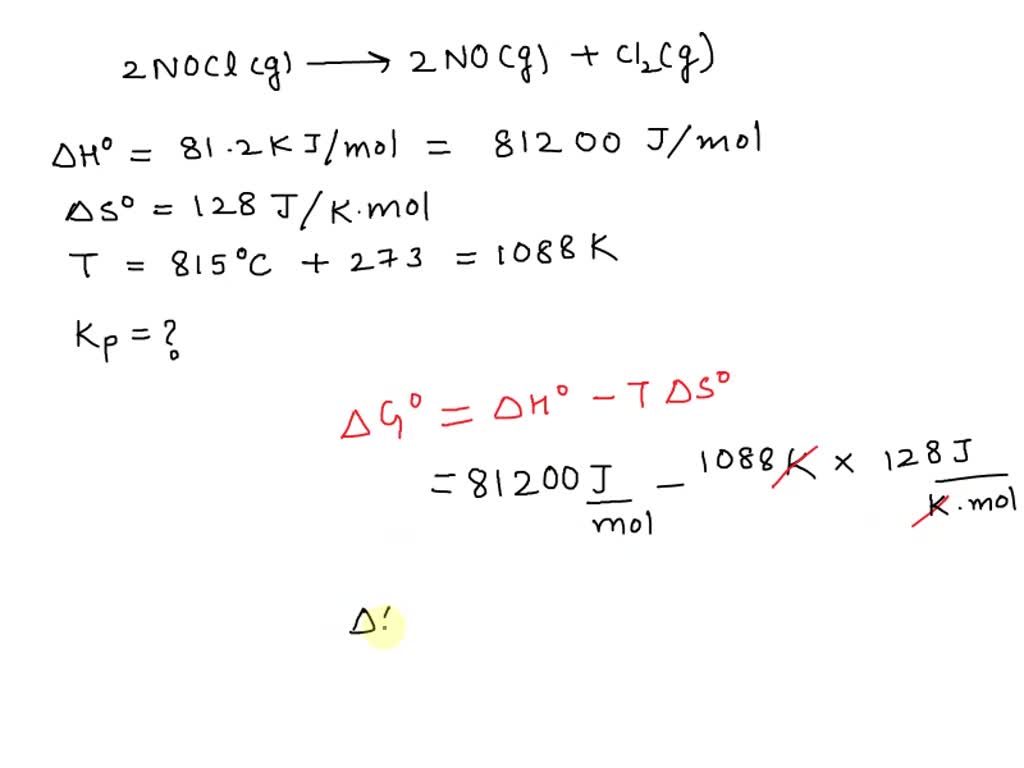 2NOCl(g) ⟶ 2NO(g) + Cl₂(g)
ΔH° = 81.2KJ/mol = 81200 J/mol
ΔS° = 128 J/K.mol
T = 815°C + 273 = 1088K
Kp = ?
ΔG° = ΔH° - TΔS°
= 81200 J/mol - 1088K × 128J/K.mol
Δ